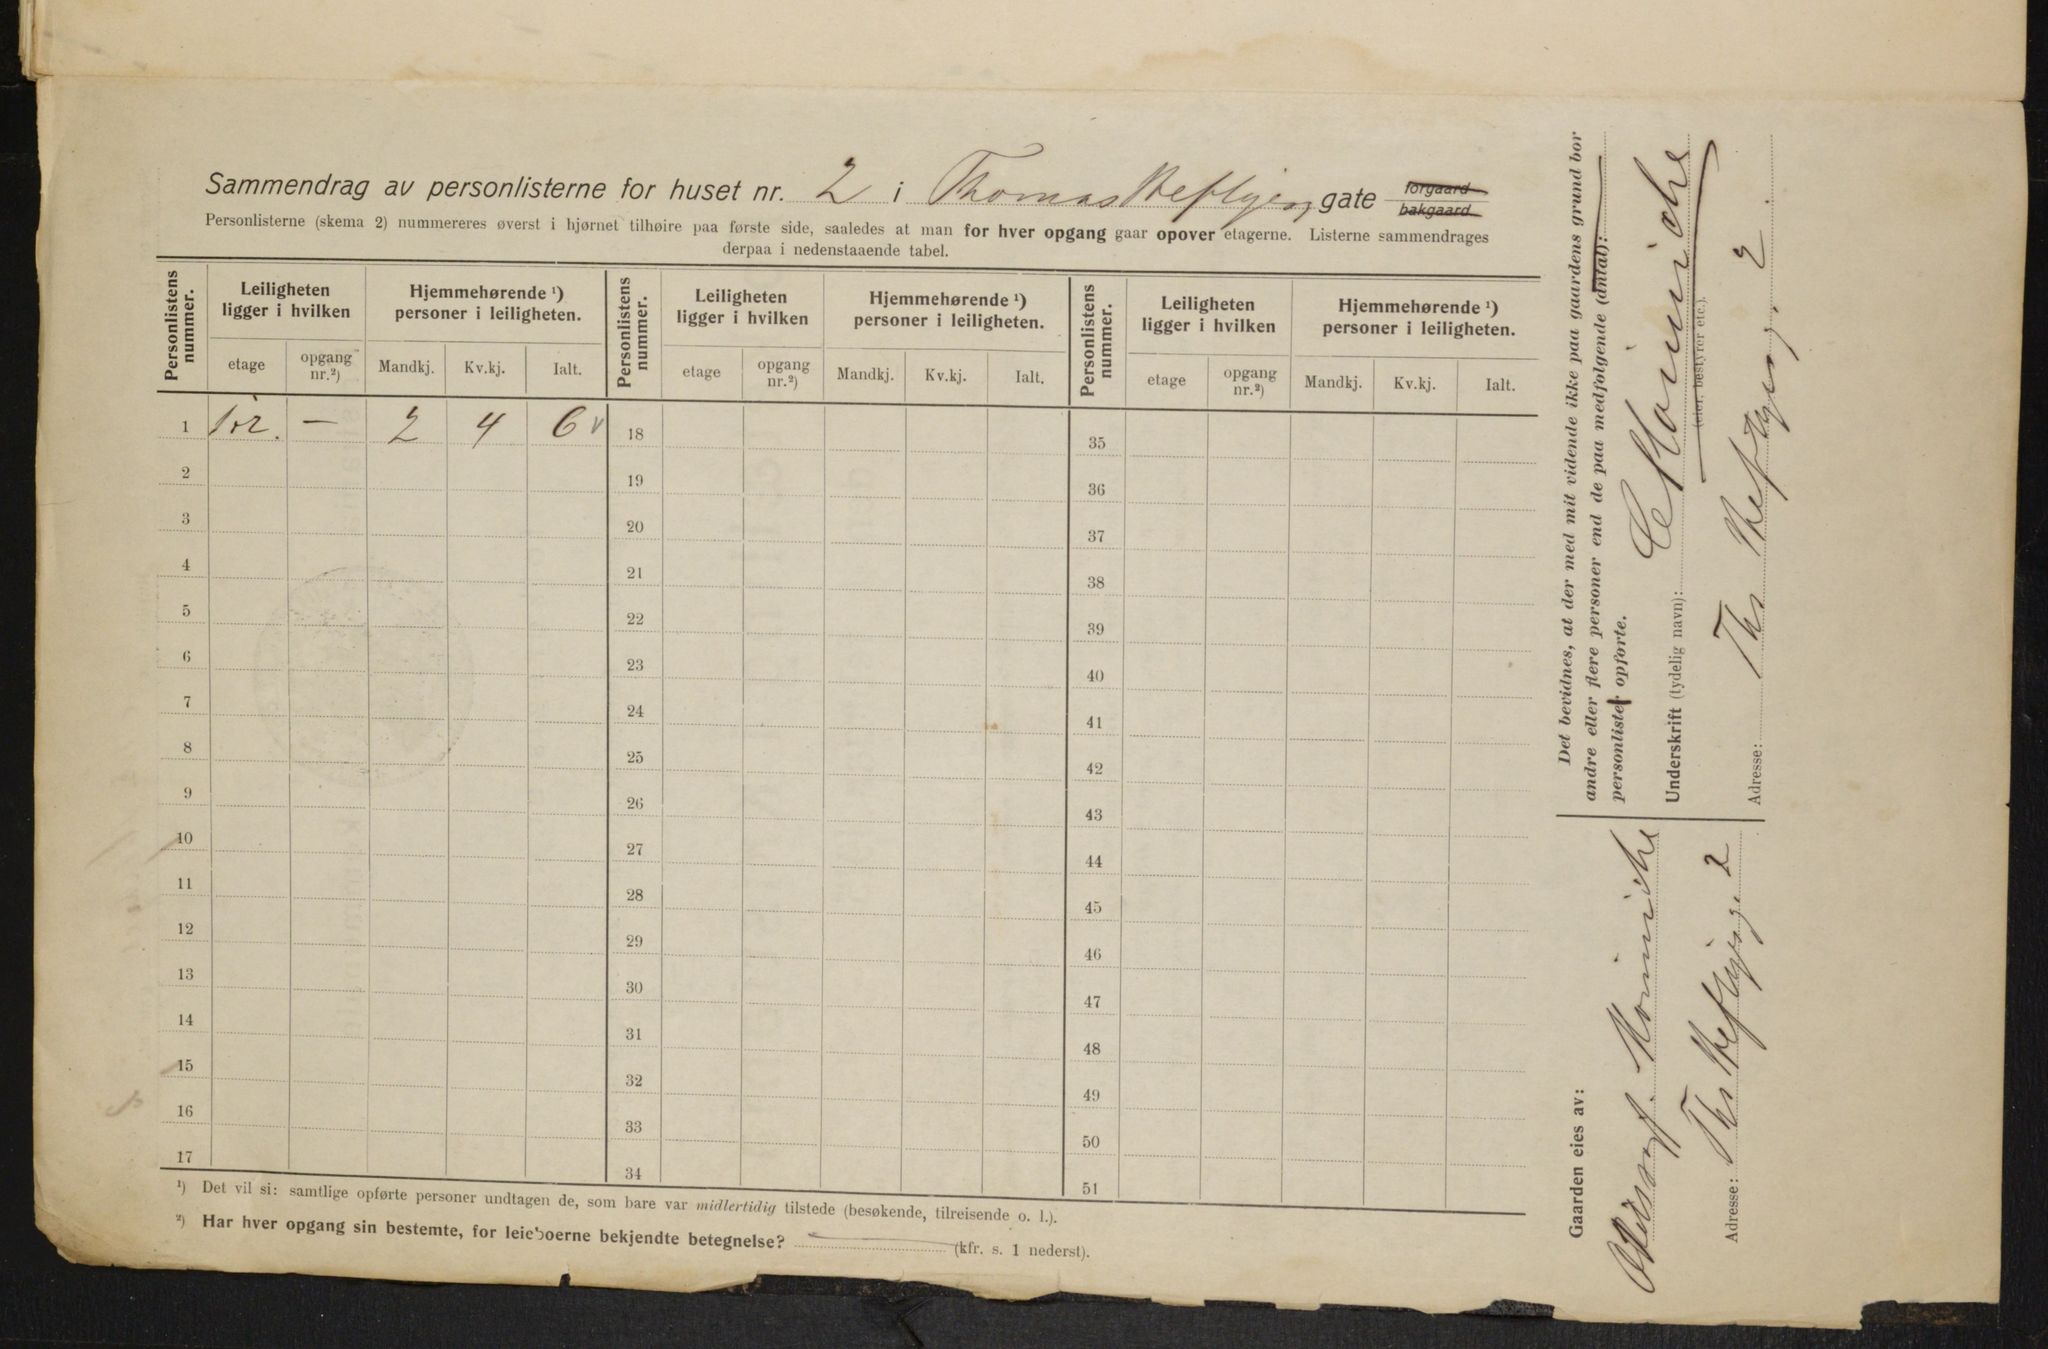 Sammendrag av personlisterne for huset nr. 2 i Thomas Heftyes gate forgaard bakgaard
Personlisterne (skema 2) nummereres øverst i hjørnet tilhøire paa første side, saaledes at man for hver opgang gaar opover etagerne. Listerne sammendrages
derpaa i nedenstaaende tabel.
Personlistens nummer.
Leiligheten ligger i hvilken
Hjemmehørende ¹) personer i leiligheten.
Personlistens nummer.
Leiligheten ligger i hvilken
Hjemmehørende ¹) personer i leiligheten.
Personlistens nummer.
Leiligheten ligger i hvilken
Hjemmehørende ¹) personer i leiligheten.
etage opgang nr.²) Mandkj. Kv.kj. Ialt. etage opgang nr.²) Mandkj. Kv.kj. Ialt. etage opgang nr.²) Mandkj. Kv.kj. Ialt.
1 1ste. — 2 4 6 v 18 35
2 19 36
3 20 37
4 21 38
5 22 39
6 23 40
7 24 41
8 25 42
9 26 43
10 27 44
11 28 45
12 29 46
13 30 47
14 31 48
15 32 49
16 33 50
17 34 51
¹) Det vil si: samtlige opførte personer undtagen de, som bare var midlertidig tilstede (besøkende, tilreisende o. l.).
²) Har hver opgang sin bestemte, for leieboerne bekjendte betegnelse? (kfr. s. 1 nederst).
Det bevidnes, at der med mit vidende ikke paa gaardens grund bor
andre eller flere personer end de paa medfølgende (antal):
personlister opførte.
Underskrift (tydelig navn):
(eier, bestyrer etc.).
Adresse: Ths Heftyesg. 2.
Gaarden eies av:
Adresse: Ths Heftyesg. 2